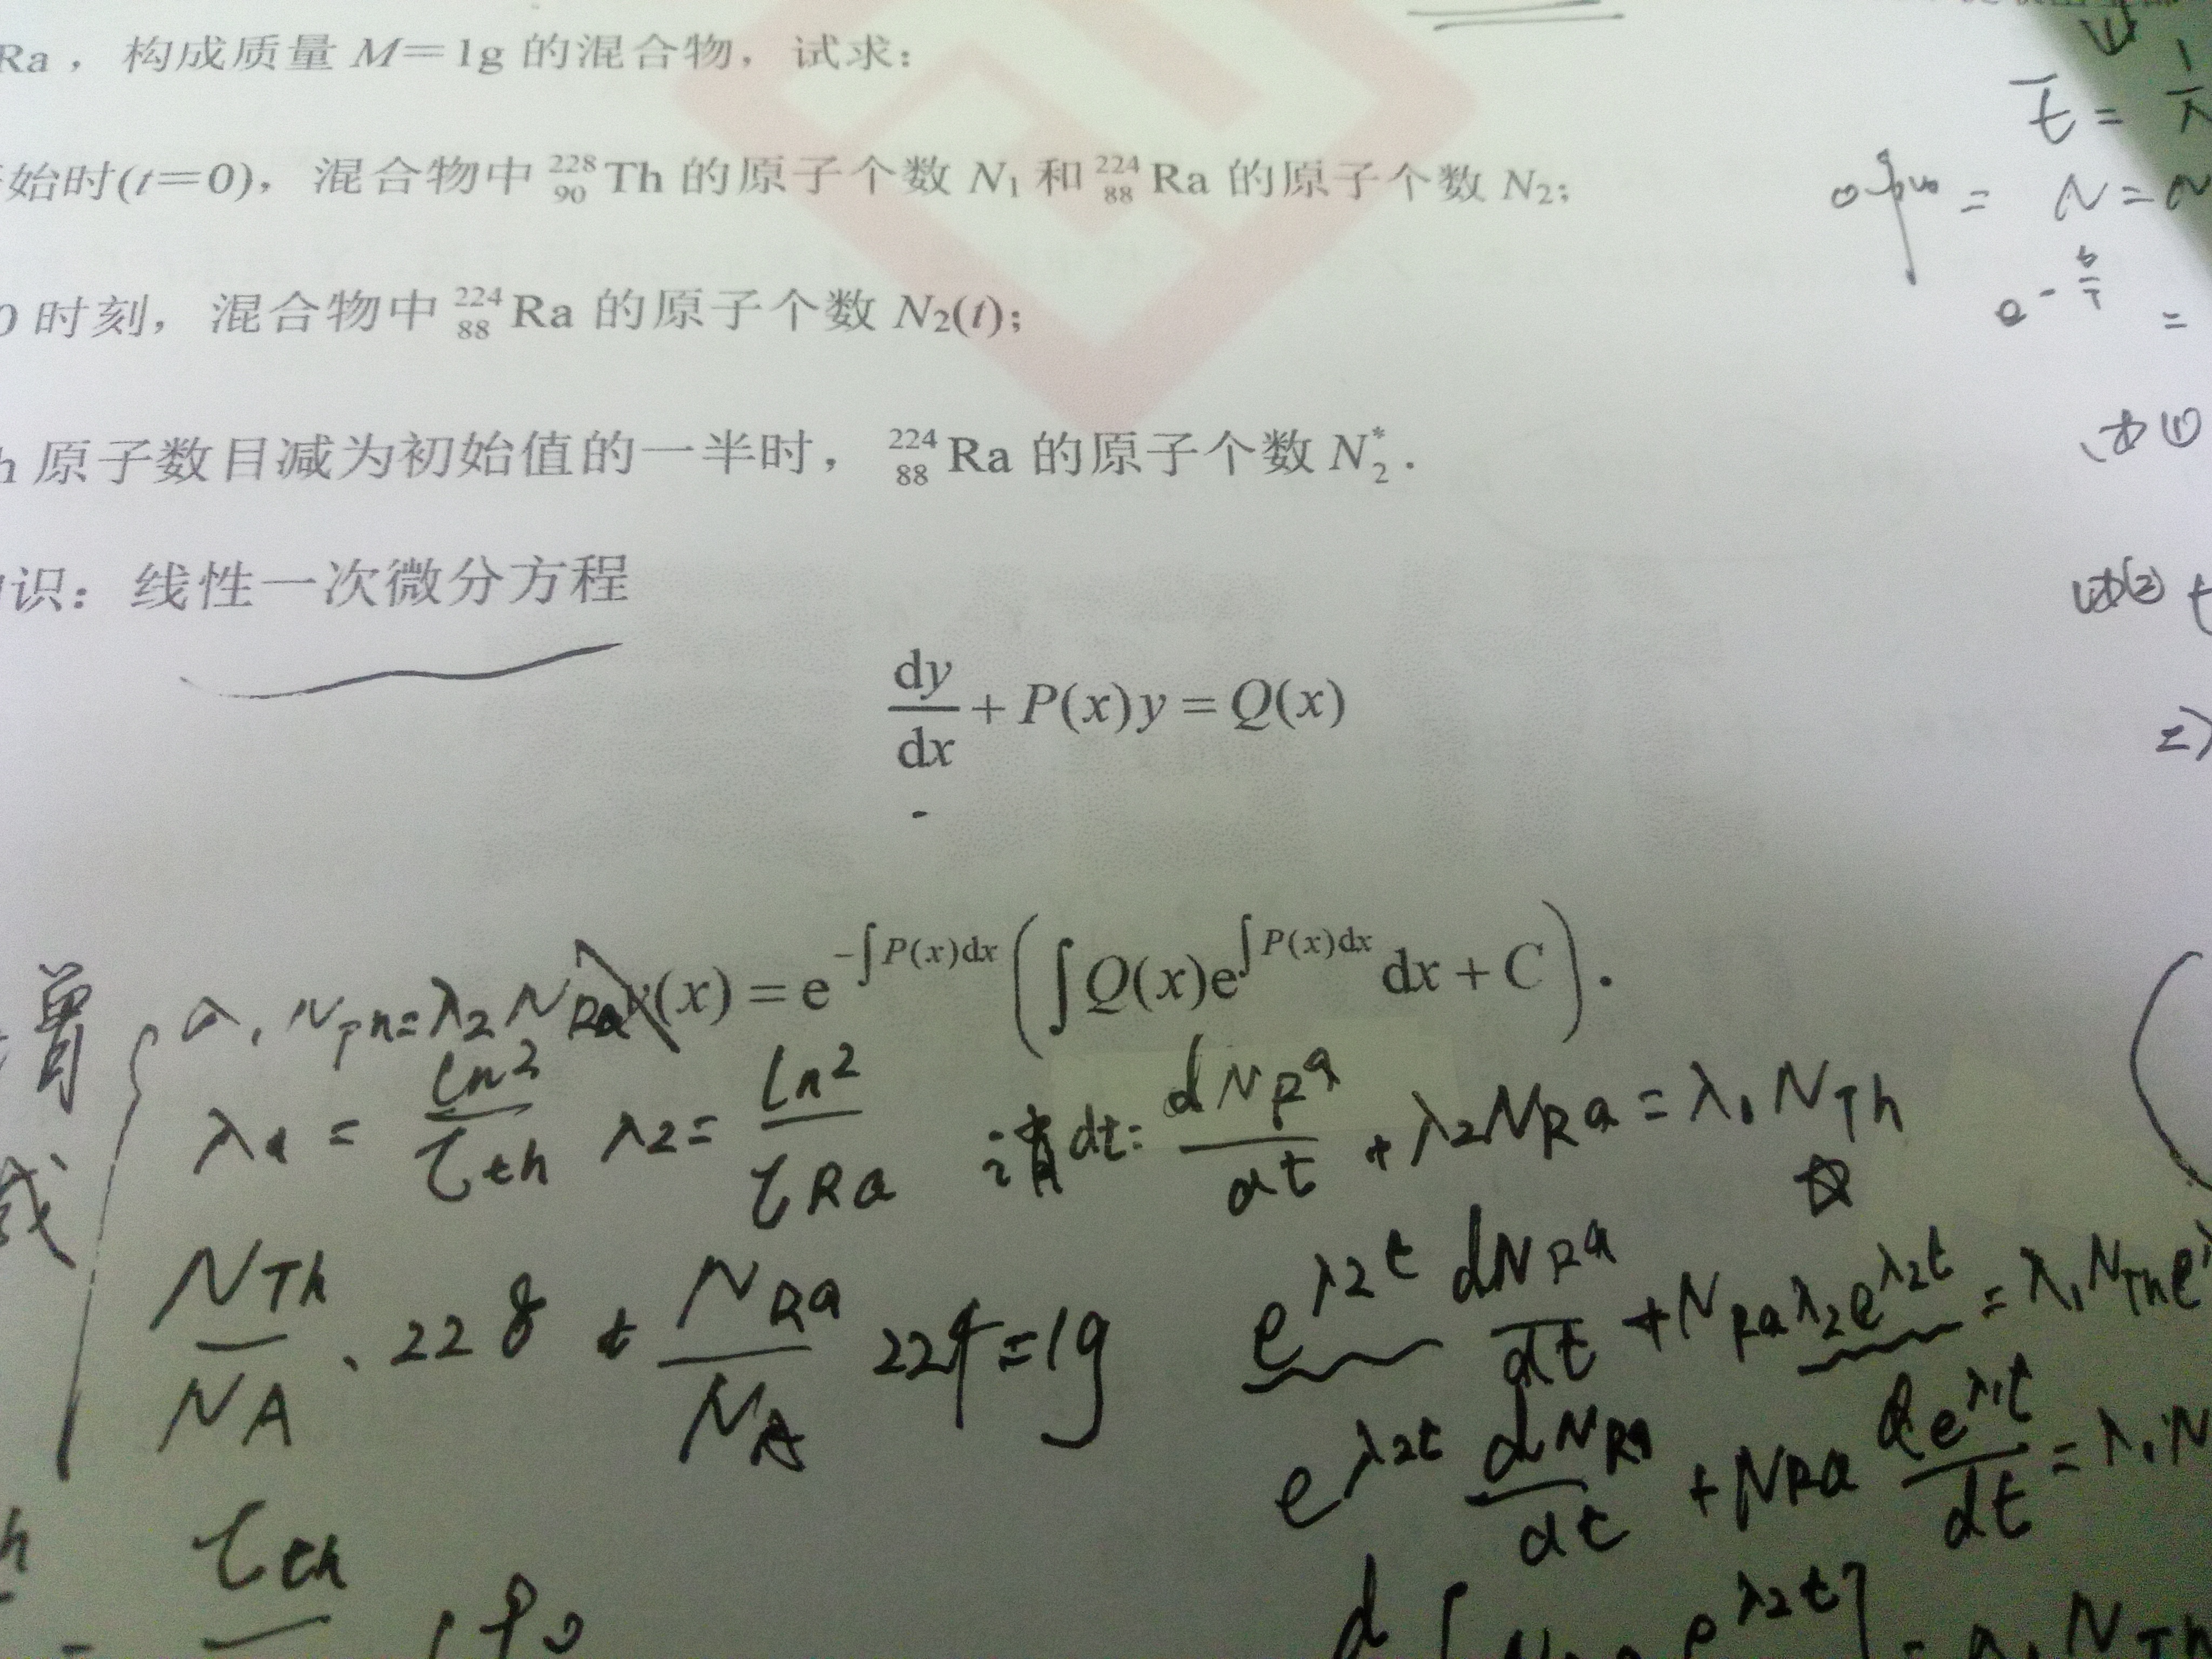 Ra，构成质量 M＝1g 的混合物，试求：
始时(t＝0)，混合物中 ²²⁸₉₀Th 的原子个数 N₁ 和 ²²⁴₈₈Ra 的原子个数 N₂；
0 时刻，混合物中 ²²⁴₈₈Ra 的原子个数 N₂(t)；
h 原子数目减为初始值的一半时，²²⁴₈₈Ra 的原子个数 N₂*.
识：线性一次微分方程
dy/dx + P(x)y = Q(x)
(x) = e^(-∫P(x)dx) (∫Q(x)e^(∫P(x)dx) dx + C).
N_Th = λ₂ N_Ra
λ₁ = ln2/τ_th λ₂ = ln2/τ_Ra
消dt: dN_Ra/dt + λ₂N_Ra = λ₁N_Th
N_Th/N_A · 228 + N_Ra/N_A 224 = 1g
e^(λ₂t) dN_Ra/dt + N_Ra λ₂e^(λ₂t) = λ₁N_Th e
e^(λ₂t) dN_Ra/dt + N_Ra de^(λ₁t)/dt = λ₁N
τ_th
d [ e^(λ₂t)] = N_Th
t̄ = 1/λ
= N = N
e^(-t/τ) =